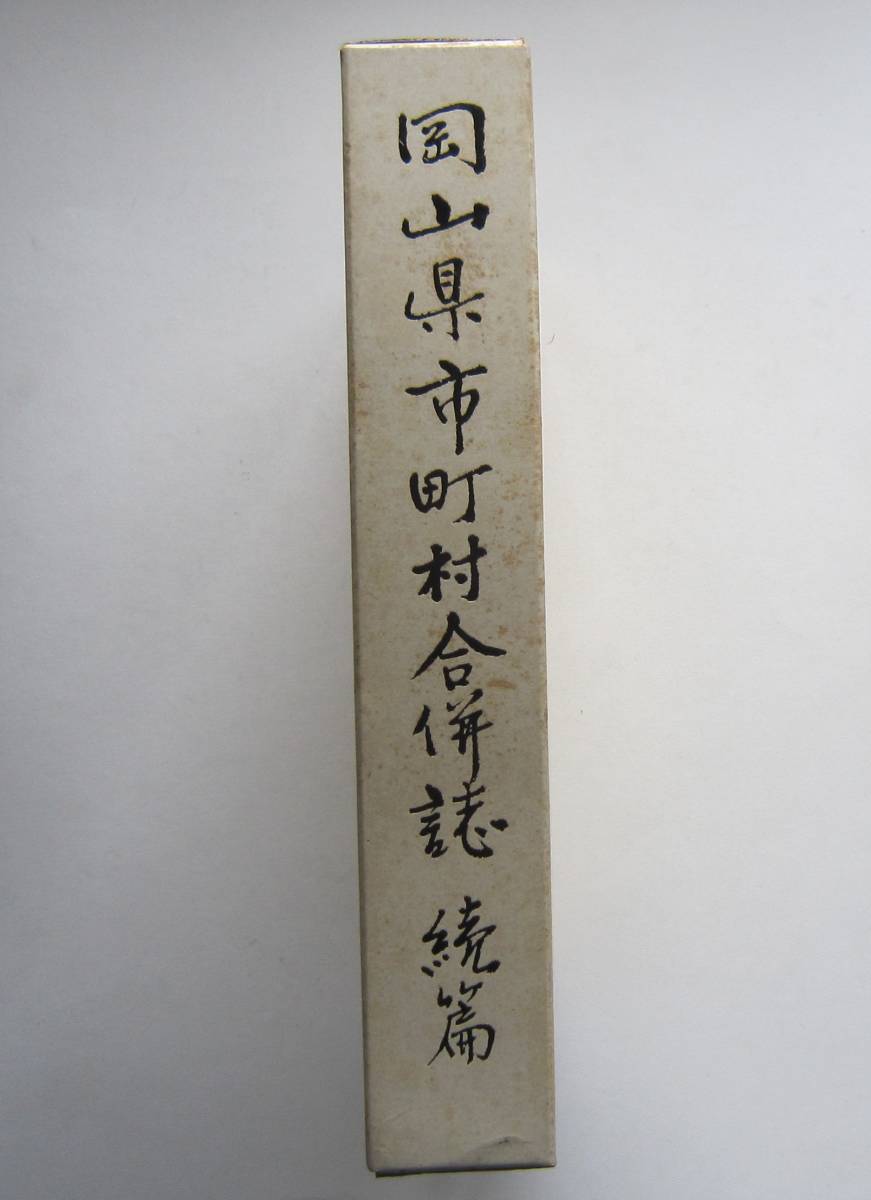 岡山県市町村合併誌 続篇